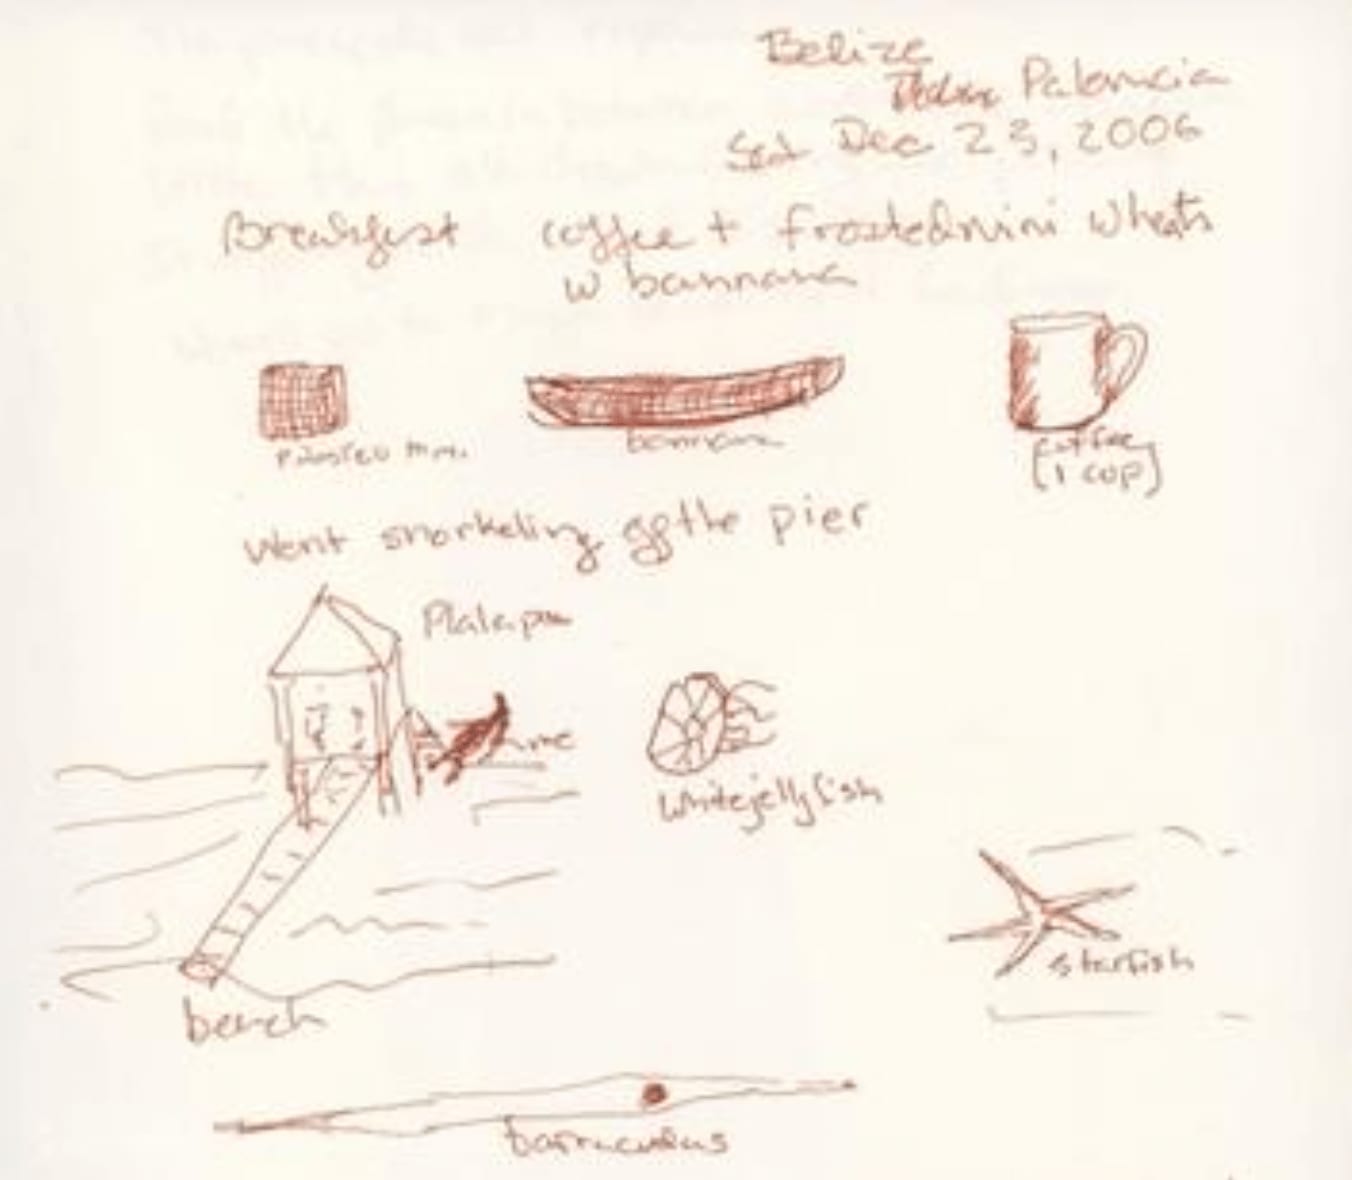 Belize
Palancia
Sat Dec 23, 2006
Breakfast coffee + frosted mini wheats
w bannana
Frosted Mini
bannana
coffee
(1 cup)
Went snorkeling off the pier
Plalapa
me
white jelly fish
starfish
beach
barracudas